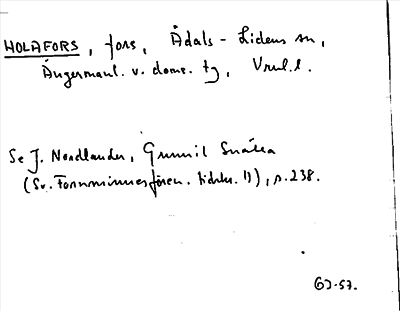 HOLAFORS, fors, Ådals-Lidens sn,
Ångermanl. v. doms. tg,
Se J. Nordlander, Gunnil Snälla
(Sv. Fornminnesfören. tidskr. 11), s. 238.
GJ-57.